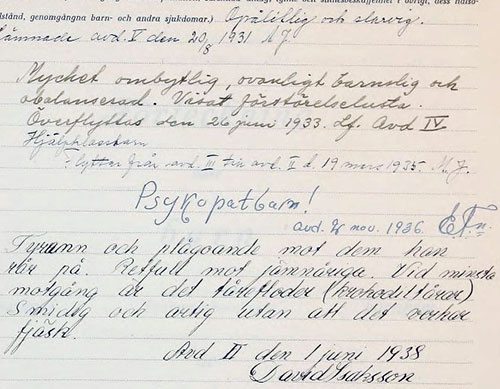 stånd, genomgångna barn- och andra sjukdomar.) Opålitlig och slarvig.
Lämnade avd. V den 20/8 1931 A.J.
Mycket ombytlig, ovanligt barnslig och
obalanserad. Visat förstörelselusta.
Överflyttas den 26 juni 1933. Avd IV
Hjälpklassbarn
flyttar från avd. III till avd. I d. 19 mars 1935.
Psykopatbarn!
avd. nov. 1936.
Tyrann och plågoande mot dem han
rår på. Retfull mot jämnåriga. Vid minsta
motgång är det tårefloder (krokodiltårar)
Smidig och artig utan att det verkar
fjäsk.
Avd II den 1 juni 1938
David Isaksson